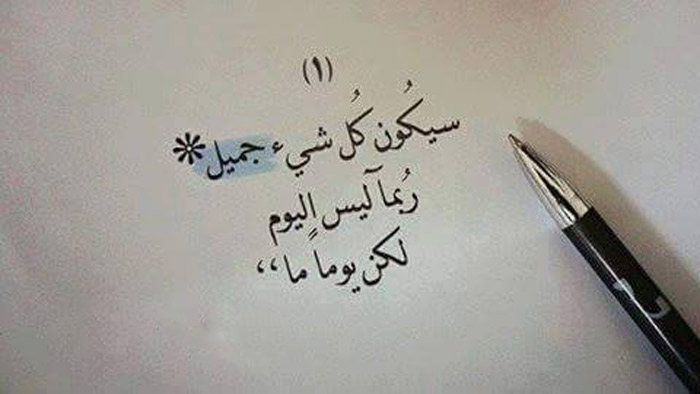 (١)
سيكُون كُل شيء جميل*
رُبما آليس اليوم
لكن يوماً ما،،